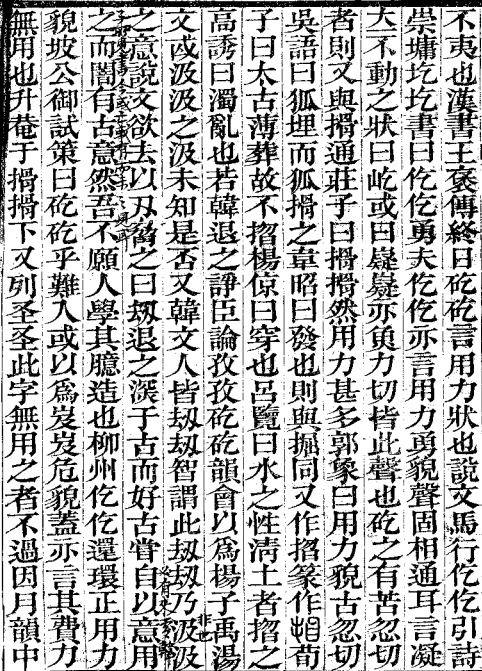 不夷也漢書王褒傳終日矻矻言用力狀也說文馬行仡仡引詩
崇墉圪圪書曰仡仡勇夫仡仡亦言用力勇貌聲固相通耳言凝
大不動之狀曰屹或曰嶷嶷亦魚力切皆此聲也矻之有苦忽切
者則又與搰通莊子曰搰搰然用力甚多郭象曰用力貌古忽切
吳語曰狐埋而狐搰之韋昭曰發也則與掘同又作㧾篆作㧾荀
子曰太古薄葬故不㧾楊倞曰穿也呂覽曰水之性淸土者㧾之
高誘曰濁亂也若韓退之諍臣論孜孜矻矻韻會以爲楊子禹湯
文或汲汲之汲未知是否又韓文人皆刼刼智謂此刼刼乃汲汲
之意說文欲去以刀脅之曰刼退之深于古而好古嘗自以意用
之而闇有古意然吾不願人學其臆造也柳州仡仡還環正用力
貌坡公御試策曰矻矻乎難人或以爲岌岌危貌蓋亦言其費力
無用也升菴于搰搰下又列圣圣此字無用之者不過因月韻中